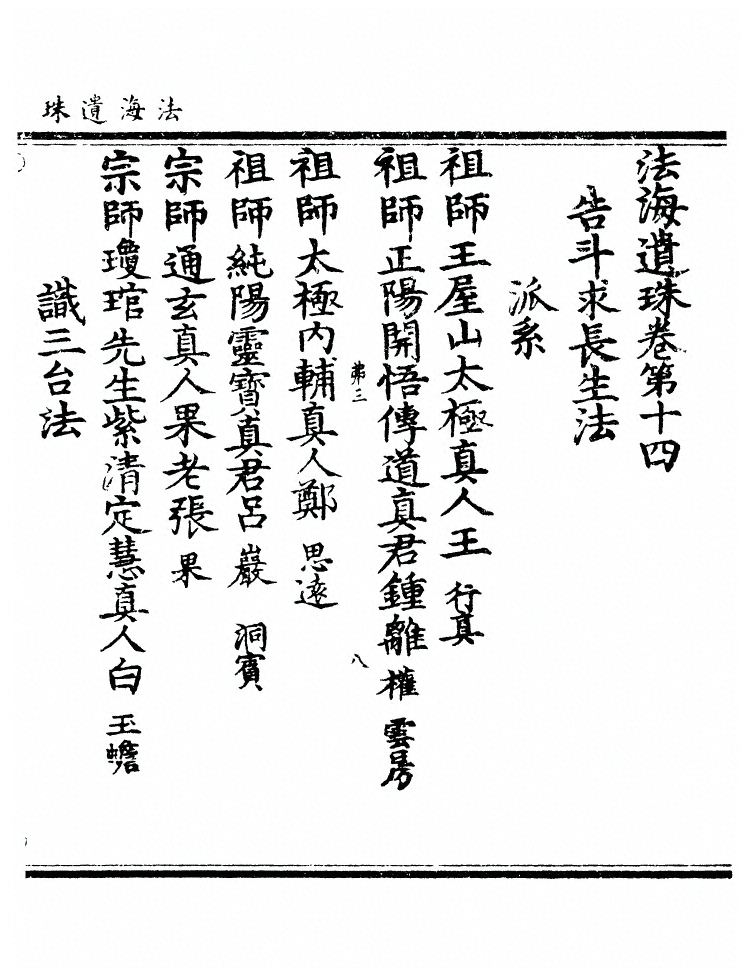 法海遺珠
法海遺珠卷第十四
告斗求長生法
派系
祖師王屋山太極真人王 行真
祖師正陽開悟傳道真君鍾離 權 雲房
第三
八
祖師太極內輔真人鄭 思遠
祖師純陽靈寶真君呂 巖 洞賓
宗師通玄真人果老張 果
宗師瓊琯先生紫清定慧真人白 玉蟾
識三台法